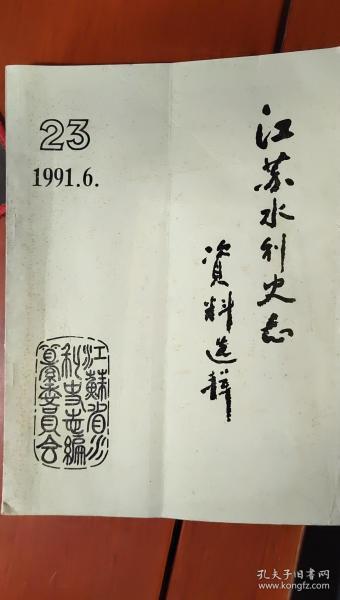 23
1991.6.
江苏水利史志
资料选辑
江蘇省水
利史志編
纂委員会
孔夫子旧书网
www.kongfz.com